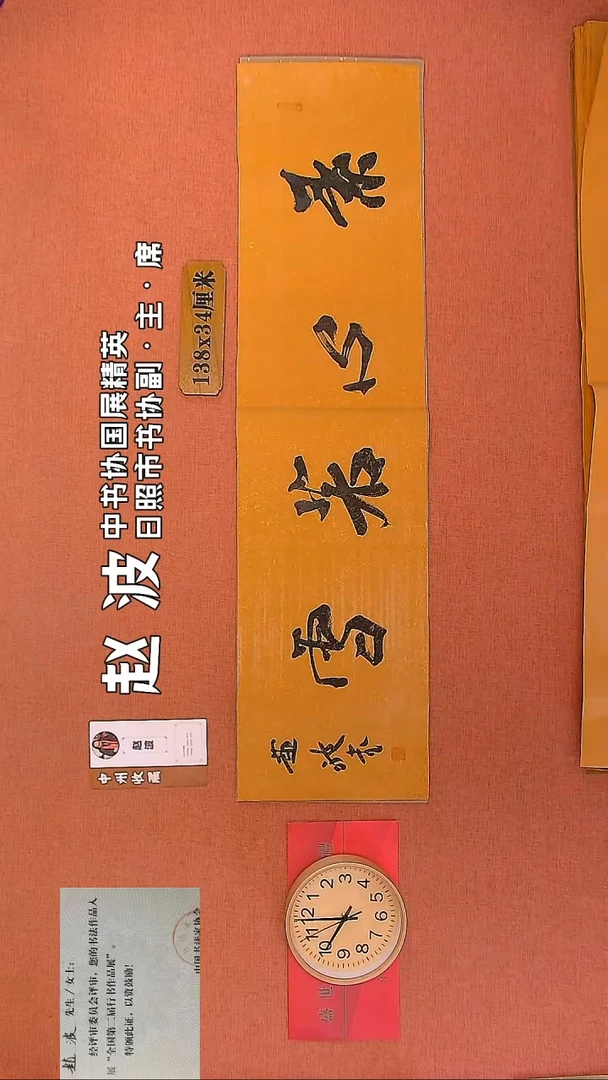 赵波
中书协国展精英
日照市书协副·主·席
138x34厘米
赵波
中州收藏
素心若雪
赵波书
赵波 先生/女士:
经评审委员会评审,您的书法作品入
展“全国第二届行书作品展”。
特颁此证,以资鼓励!
中国书法家协会
盛世
12
1
2
3
4
5
6
7
8
9
10
11